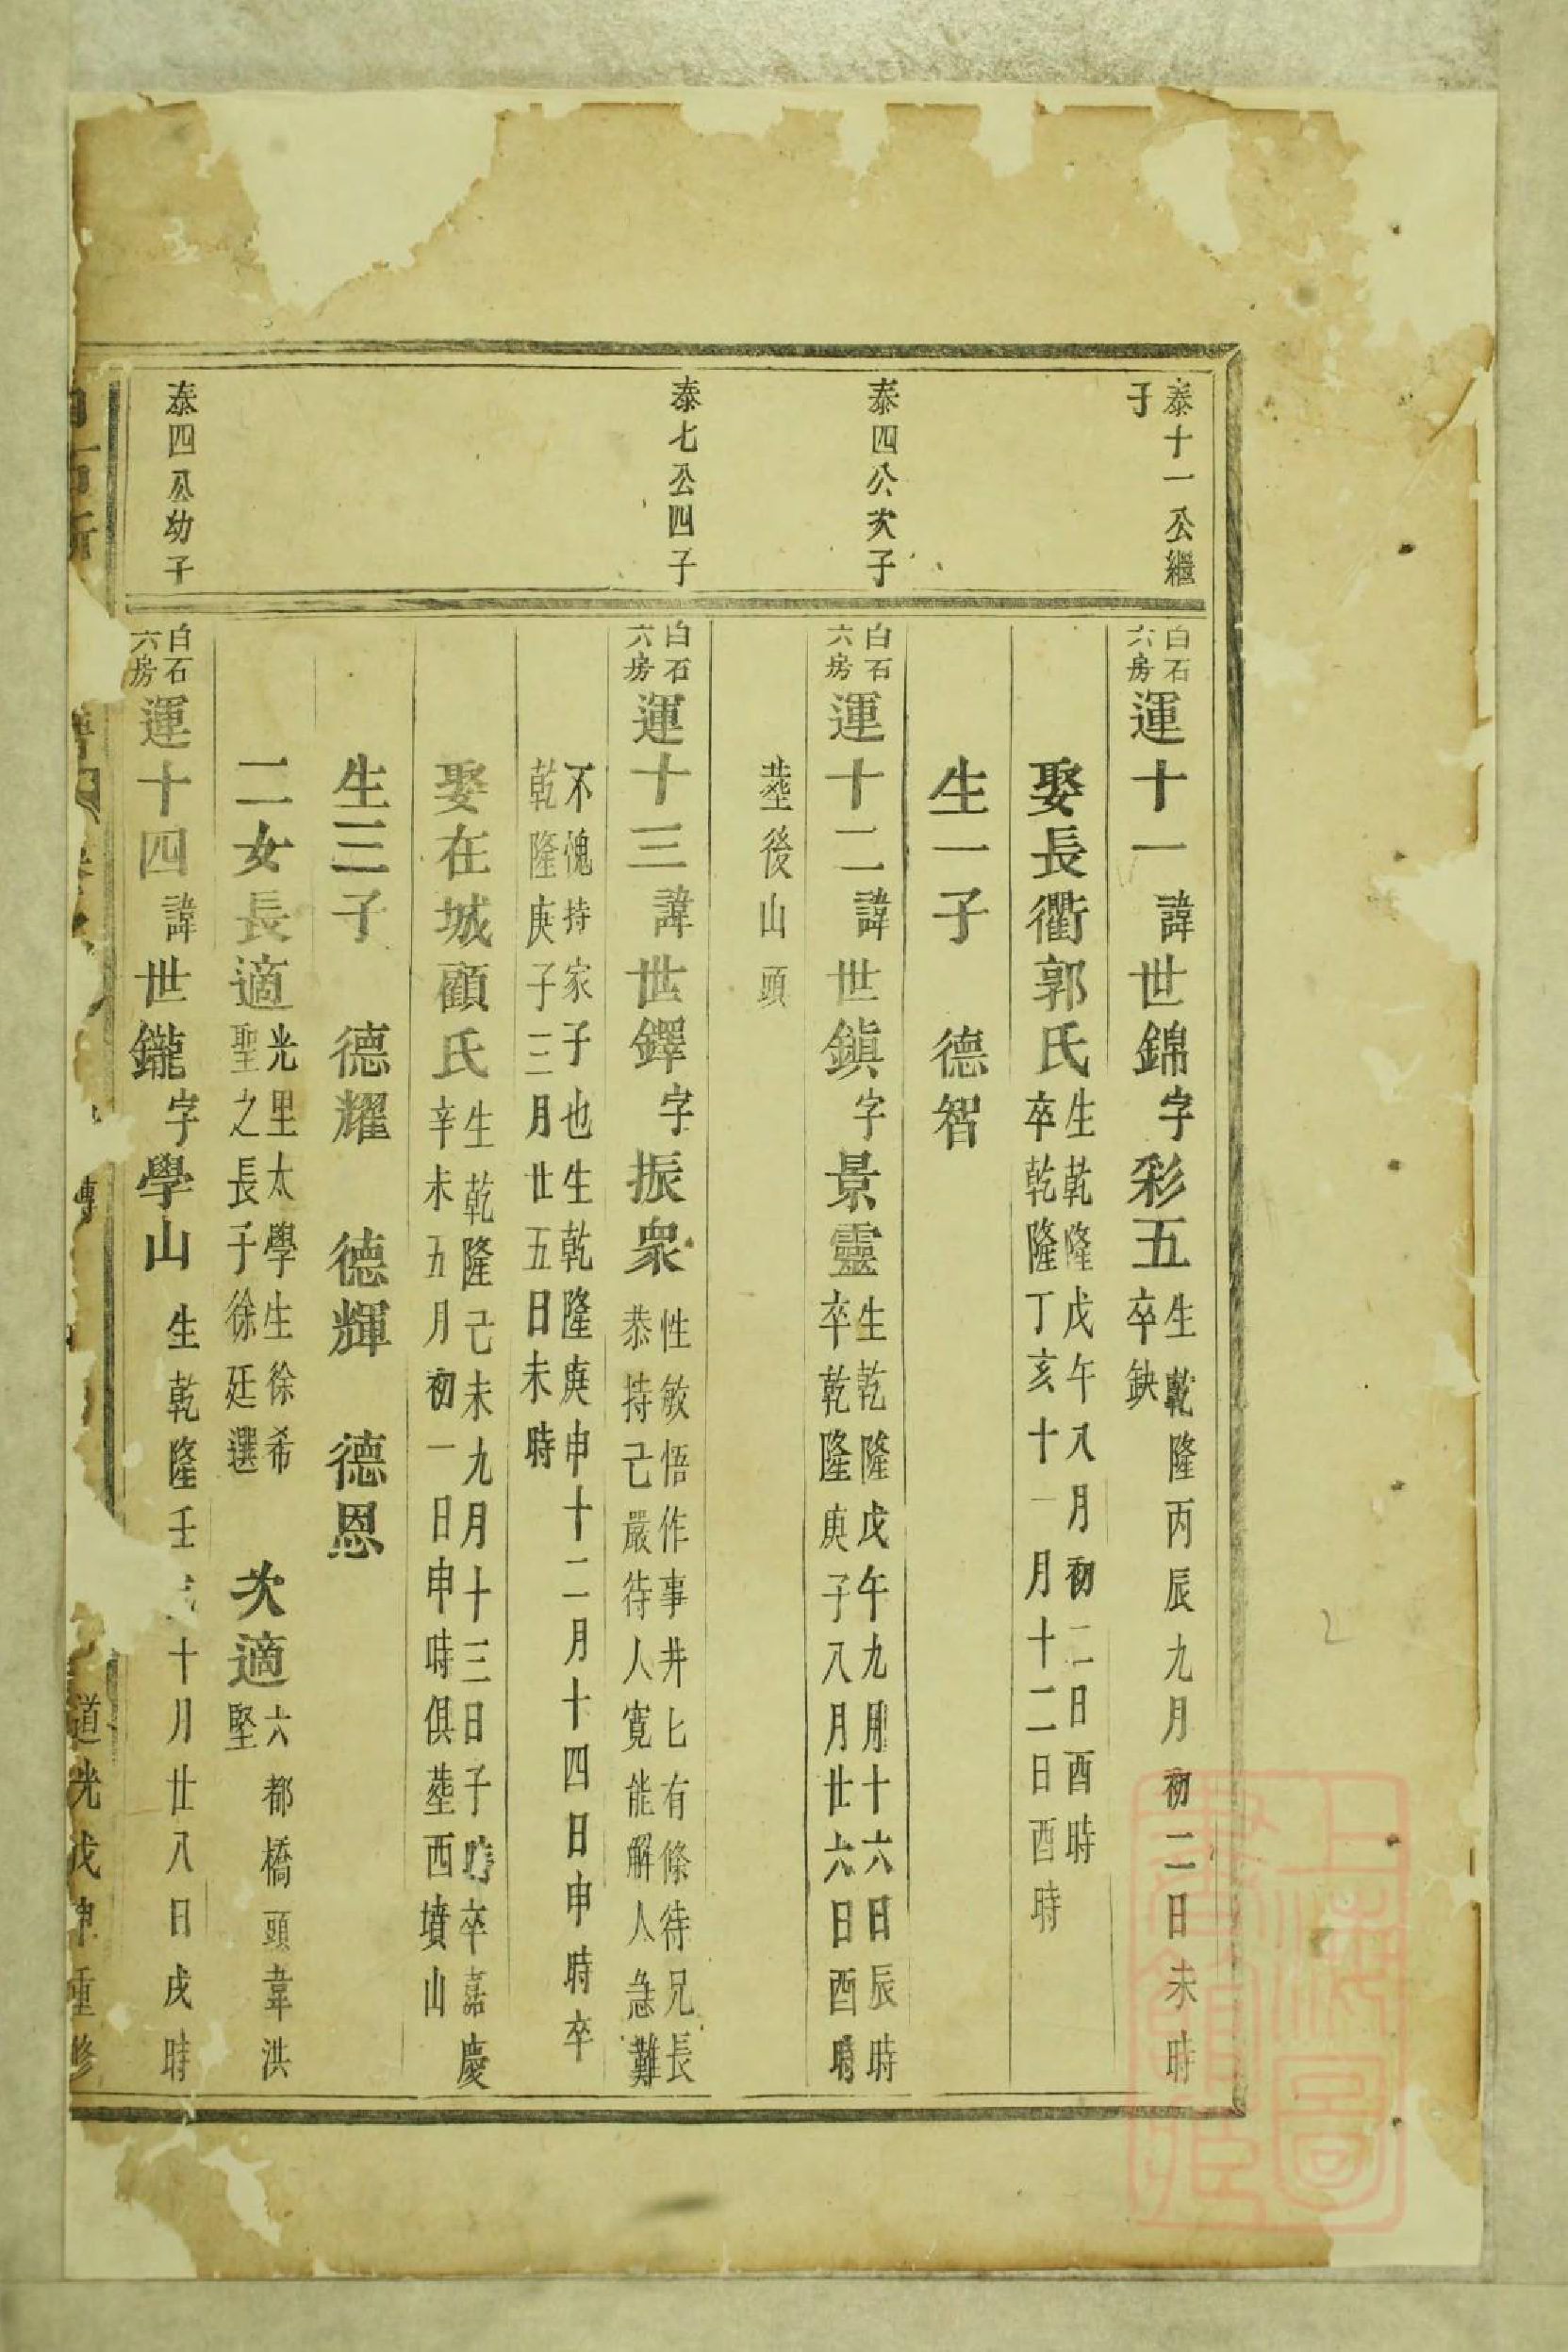 泰十一公繼
子
白石
六房
運十一諱世錦字彩五
生乾隆丙辰九月初二日未時
卒缺
娶長衢郭氏
生乾隆戊午八月初二日酉時
卒乾隆丁亥十一月十二日酉時
生一子 德智
泰四公次子
白石
六房
運十二諱世鎮字景靈
生乾隆戊午九月十六日辰時
卒乾隆庚子八月廿六日酉時
塟後山頭
泰七公四子
白石
六房
運十三諱世鐸字振衆
性敏悟作事井匕有條待兄長
恭持己嚴待人寬能解人急難
不愧持家子也生乾隆庚申十二月十四日申時卒
乾隆庚子三月廿五日未時
娶在城顧氏
生乾隆己未九月十三日子時卒嘉慶
辛未五月初一日申時俱塟西墳山
生三子 德耀 德輝 德恩
二女長適
光里太學生徐希
聖之長子徐廷選
次適
六都橋頭韋洪
堅
泰四公幼子
白石
六房
運十四諱世鑨字學山
生乾隆壬 十月廿八日戌時
道光戊申重修